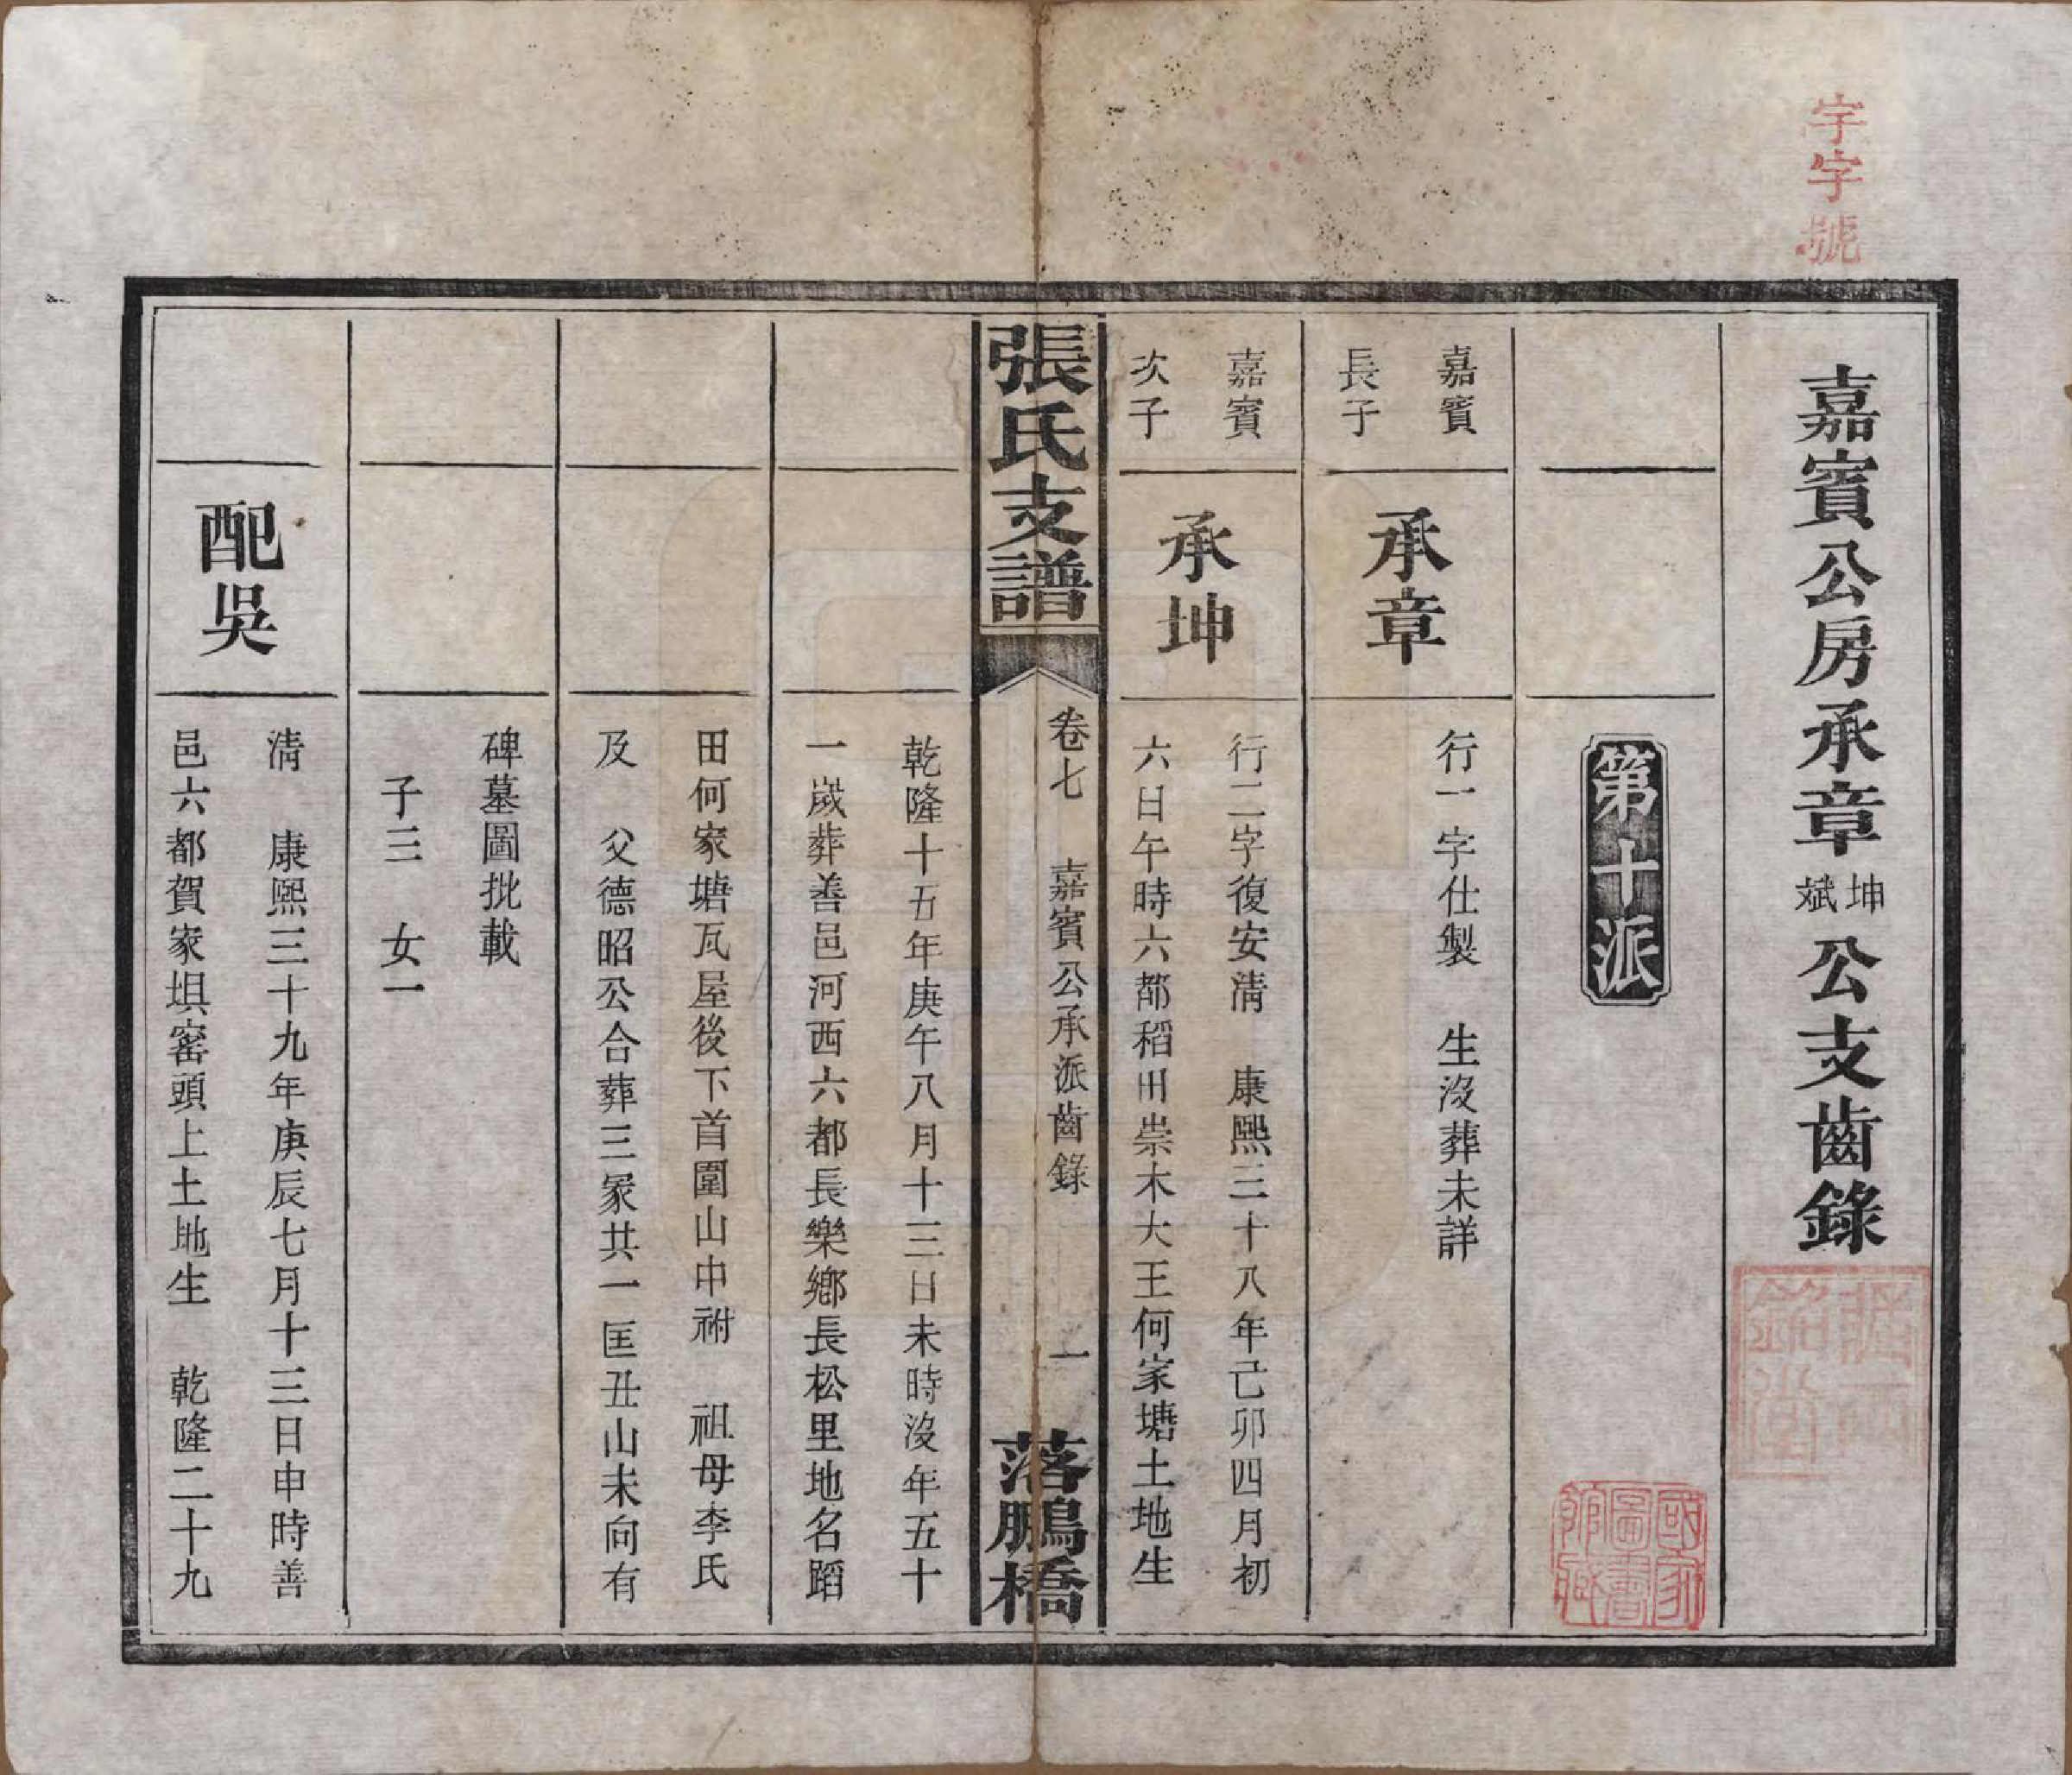 宇字號
嘉賓公房承章坤斌公支齒錄
第十派
嘉賓
長子
承章
行一字仕製　生沒葬未詳
嘉賓
次子
承坤
行二字復安清　康熙三十八年己卯四月初
六日午時六都稻田崇木大王何家塘土地生
張氏支譜
卷七　嘉賓公承派齒錄　一
落鵬橋
乾隆十五年庚午八月十三日未時沒年五十
一歲葬善邑河西六都長樂鄉長松里地名蹈
田何家塘瓦屋後下首圍山中祔　祖母李氏
及　父德昭公合葬三冢共一匡丑山未向有
碑墓圖批載
子三　女一
配吳
清　康熙三十九年庚辰七月十三日申時善
邑六都賀家埧窑頭上土地生　乾隆二十九
國家圖書館藏